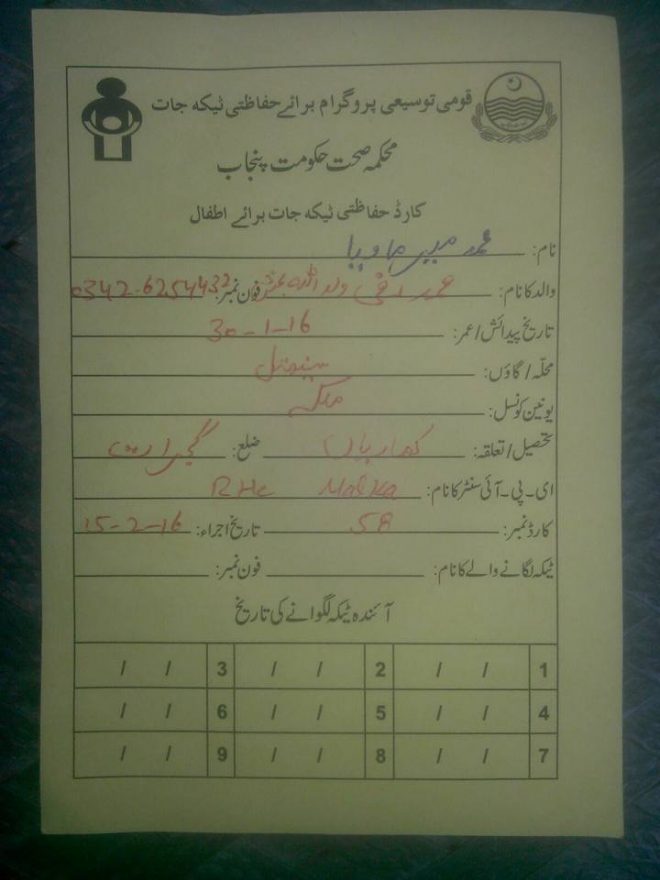 قومی توسیعی پروگرام برائے حفاظتی ٹیکہ جات
محکمہ صحت حکومت پنجاب
کارڈ حفاظتی ٹیکہ جات برائے اطفال
نام: محمد
والد کا نام: محمد ولد اللہ فون نمبر: 0342-6254432
تاریخ پیدائش/عمر: 30-1-16
محلّہ/گاؤں:
یونین کونسل: ملکہ
تحصیل/تعلقہ: کھاریاں ضلع: گجرات
ای-پی-آئی سنٹر کا نام: RHC Malka
کارڈ نمبر: 58 تاریخ اجراء: 15-2-16
ٹیکہ لگانے والے کا نام: فون نمبر:
آئندہ ٹیکہ لگوانے کی تاریخ
1 / / 2 / / 3 / /
4 / / 5 / / 6 / /
7 / / 8 / / 9 / /